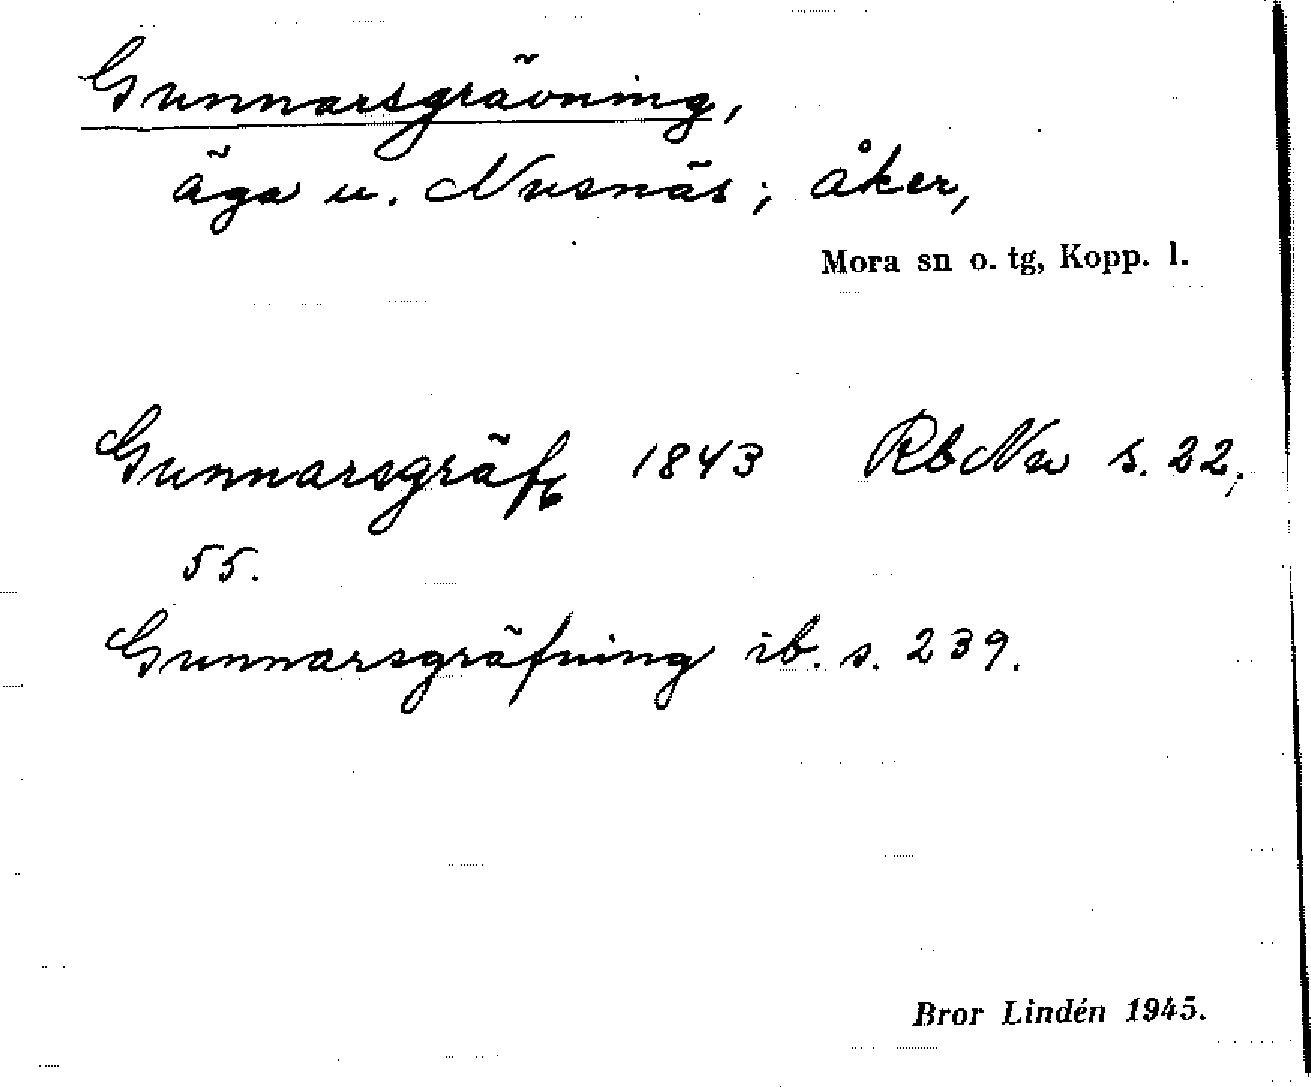 Gunnarsgrävning,
äga u. Nusnäs; åker,
Mora sn o. tg, Kopp. l.
Gunnarsgräf 1843 RbNu s. 22,
55.
Gunnarsgräfning ib. s. 239.
Bror Lindén 1945.